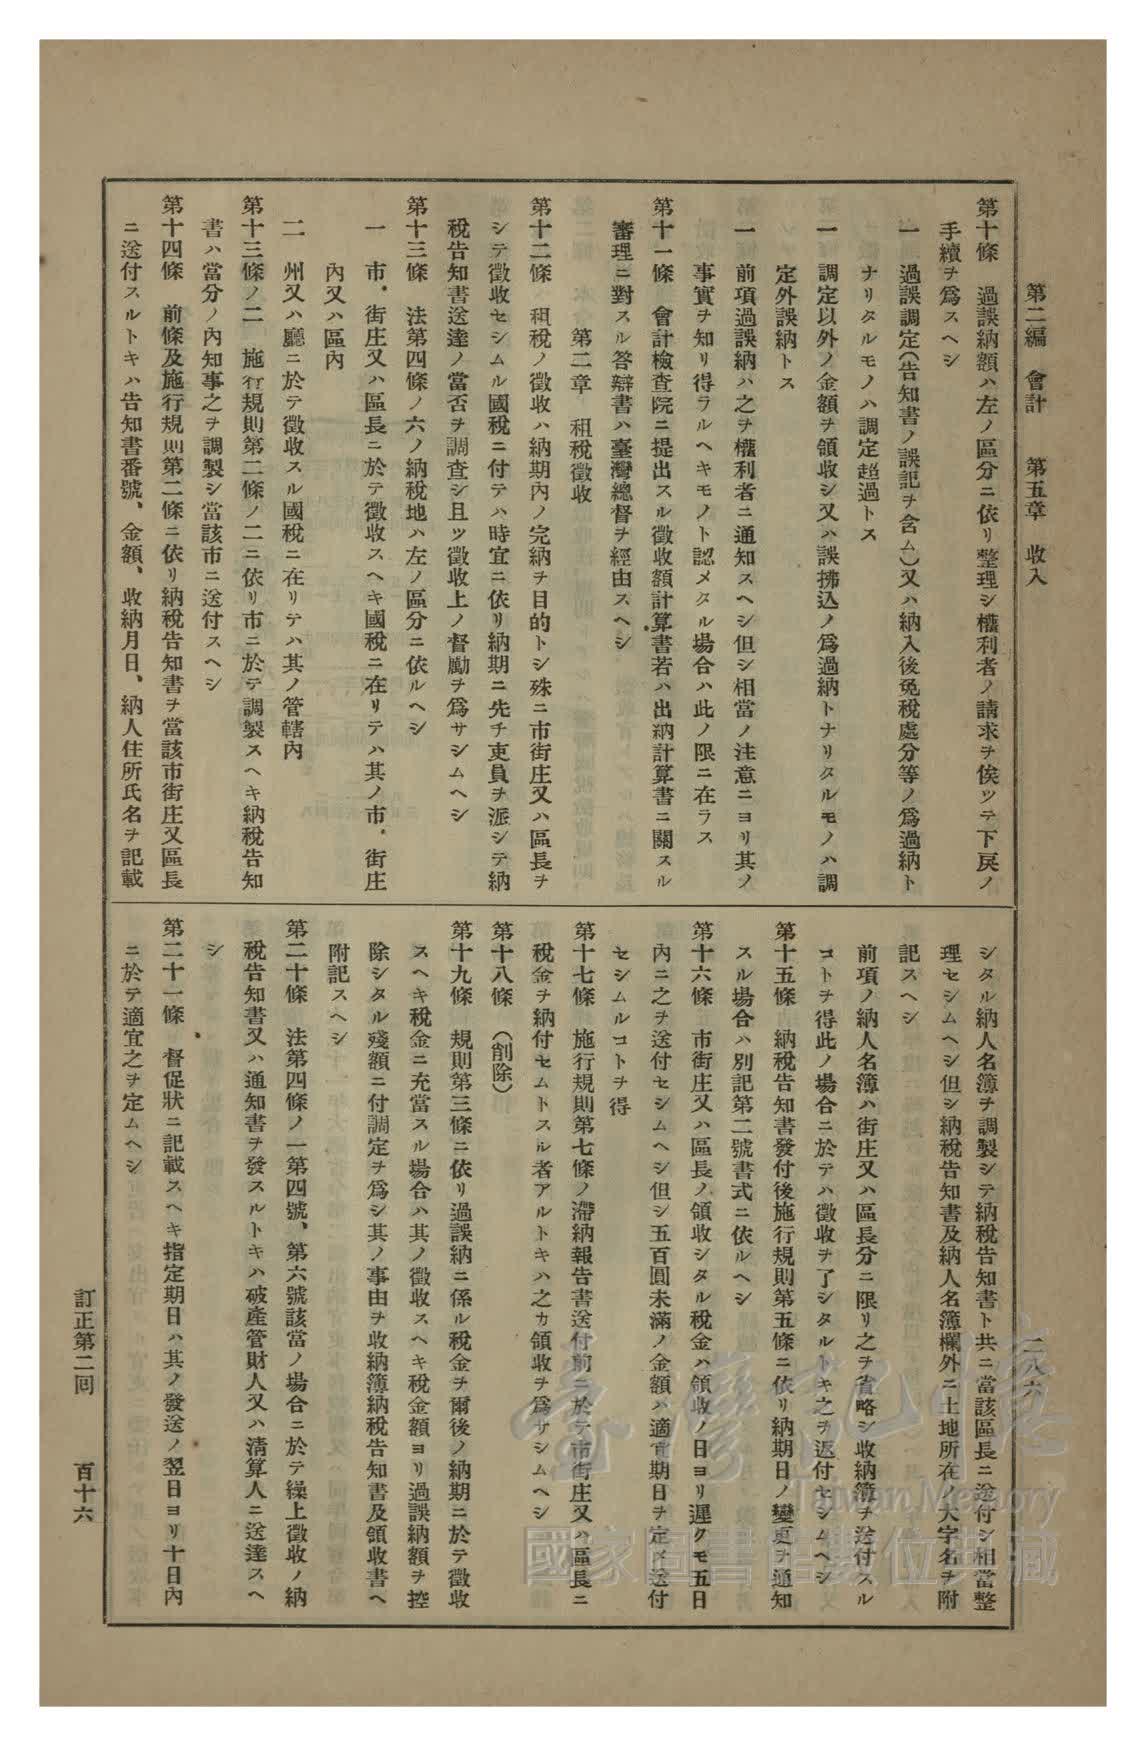 第二編　會計　　第五章　收入
二八六
第十條　過誤納額ハ左ノ區分ニ依リ整理シ權利者ノ請求ヲ俟ツテ下戾ノ
手續ヲ爲スヘシ
一　過誤調定(告知書ノ誤記ヲ含ム)又ハ納入後免稅處分等ノ爲過納ト
ナリタルモノハ調定超過トス
一　調定以外ノ金額ヲ領收シ又ハ誤拂込ノ爲過納トナリタルモノハ調
定外誤納トス
一　前項過誤納ハ之ヲ權利者ニ通知スヘシ但シ相當ノ注意ニヨリ其ノ
事實ヲ知リ得ラルヘキモノト認メタル場合ハ此ノ限ニ在ラス
第十一條　會計檢査院ニ提出スル徵收額計算書若ハ出納計算書ニ關スル
審理ニ對スル答辯書ハ臺灣總督ヲ經由スヘシ
第二章　租稅徵收
第十二條　租稅ノ徵收ハ納期內ノ完納ヲ目的トシ殊ニ市街庄又ハ區長ヲ
シテ徵收セシムル國稅ニ付テハ時宜ニ依リ納期ニ先チ吏員ヲ派シテ納
稅告知書送達ノ當否ヲ調査シ且ツ徵收上ノ督勵ヲ爲サシムヘシ
第十三條　法第四條ノ六ノ納稅地ハ左ノ區分ニ依ルヘシ
一　市、街庄又ハ區長ニ於テ徵收スヘキ國稅ニ在リテハ其ノ市、街庄
內又ハ區內
二　州又ハ廳ニ於テ徵收スル國稅ニ在リテハ其ノ管轄內
第十三條ノ二　施行規則第二條ノ二ニ依リ市ニ於テ調製スヘキ納稅告知
書ハ當分ノ內知事之ヲ調製シ當該市ニ送付スヘシ
第十四條　前條及施行規則第二條ニ依リ納稅告知書ヲ當該市街庄又區長
ニ送付スルトキハ告知書番號、金額、收納月日、納人住所氏名ヲ記載
シタル納人名簿ヲ調製シテ納稅告知書ト共ニ當該區長ニ送付シ相當整
理セシムヘシ但シ納稅告知書及納人名簿欄外ニ土地所在ノ大字名ヲ附
記スヘシ
前項ノ納人名簿ハ街庄又ハ區長分ニ限リ之ヲ省略シ收納簿ヲ送付スル
コトヲ得此ノ場合ニ於テハ徵收ヲ了シタルトキ之ヲ返付セシムヘシ
第十五條　納稅告知書發付後施行規則第五條ニ依リ納期日ノ變更ヲ通知
スル場合ハ別記第二號書式ニ依ルヘシ
第十六條　市街庄又ハ區長ノ領收シタル稅金ハ領收ノ日ヨリ遲クモ五日
內ニ之ヲ送付セシムヘシ但シ五百圓未滿ノ金額ハ適宜期日ヲ定メ送付
セシムルコトヲ得
第十七條　施行規則第七條ノ滯納報告書送付前ニ於テ市街庄又ハ區長ニ
稅金ヲ納付セムトスル者アルトキハ之カ領收ヲ爲サシムヘシ
第十八條　(削除)
第十九條　規則第三條ニ依リ過誤納ニ係ル稅金ヲ爾後ノ納期ニ於テ徵收
スヘキ稅金ニ充當スル場合ハ其ノ徵收スヘキ稅金額ヨリ過誤納額ヲ控
除シタル殘額ニ付調定ヲ爲シ其ノ事由ヲ收納簿納稅告知書及領收書ヘ
附記スヘシ
第二十條　法第四條ノ一第四號、第六號該當ノ場合ニ於テ繰上徵收ノ納
稅告知書又ハ通知書ヲ發スルトキハ破產管財人又ハ淸算人ニ送達スヘ
シ
第二十一條　督促狀ニ記載スヘキ指定期日ハ其ノ發送ノ翌日ヨリ十日內
ニ於テ適宜之ヲ定ムヘシ
訂正第二回　　百十六
臺灣記憶
Taiwan Memory
國家圖書館數位典藏